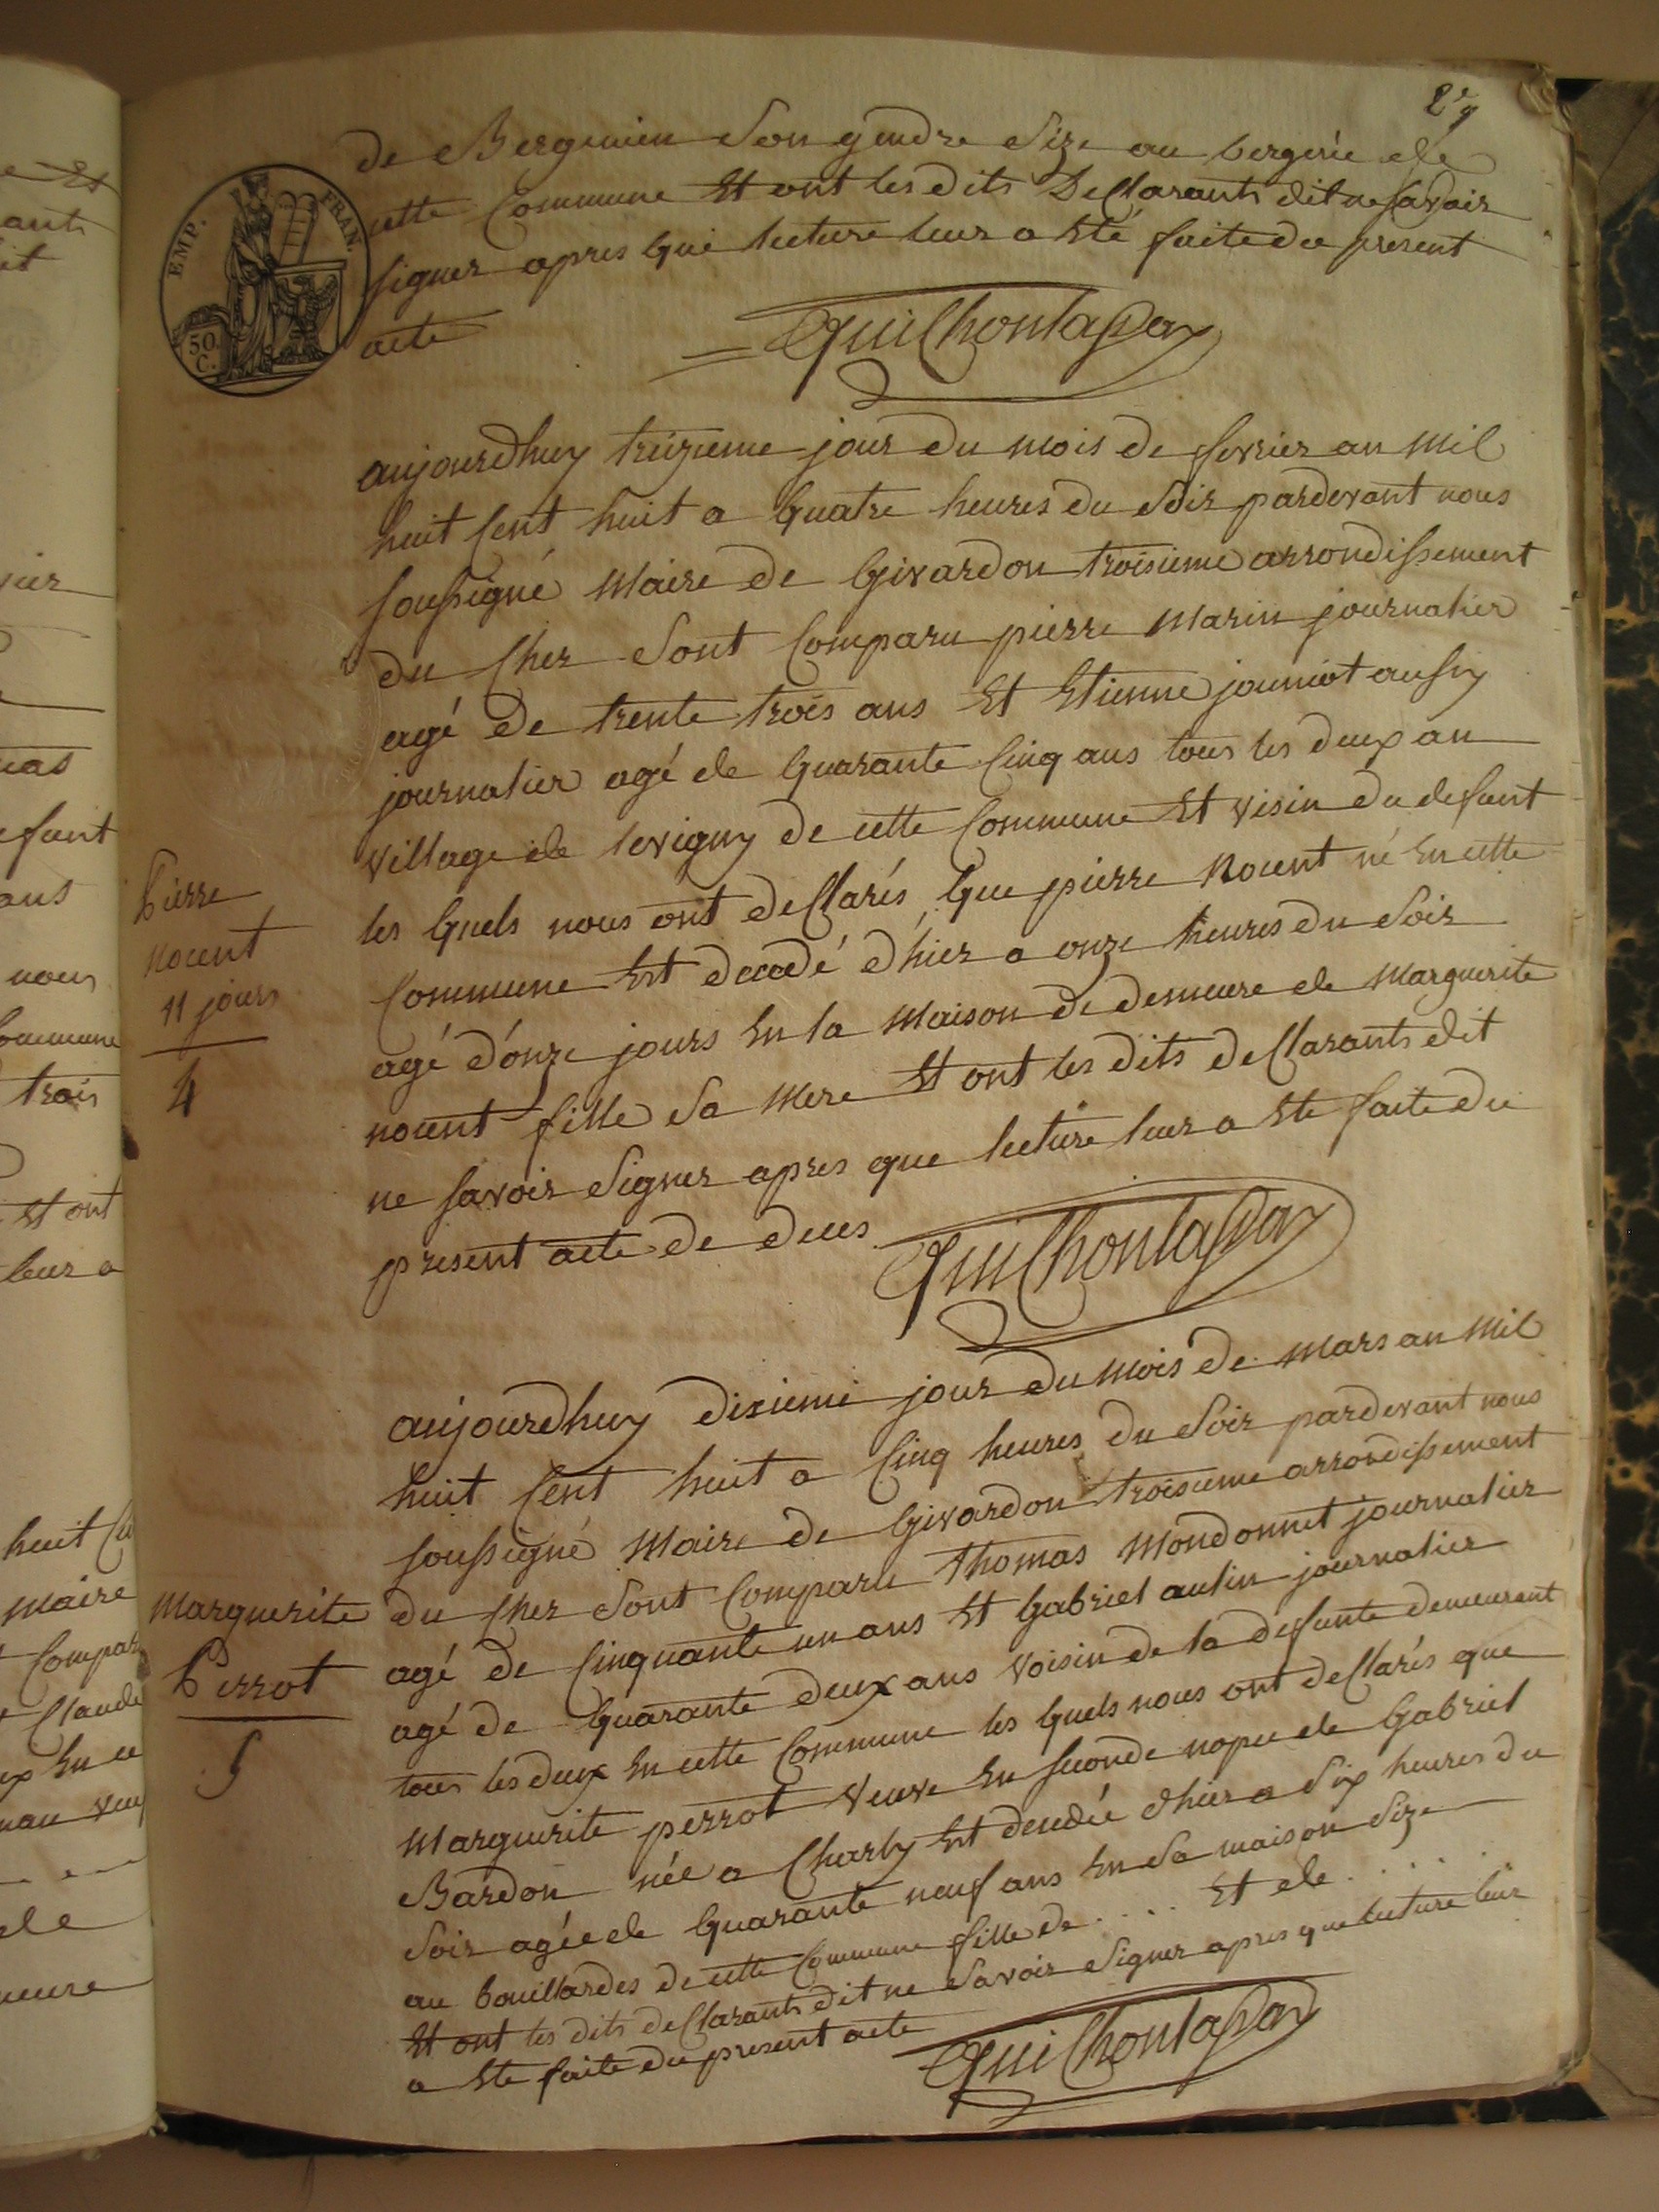 2e
de Bergemien son gendre size au bergerie de
cette Commune Et ont les dits Declarants dit ne savoir
signer apres que lecture leur a Eté faite du present
acte
EMP. FRAN.
50 C.
aujourdhuy treizieme jour du mois de fevrier an mil
huit Cent huit a quatre heures du soir pardevant nous
soussigné maire de Givardon troisieme arrondissement
du Cher sont Comparu pierre marin journalier
agé de trente trois ans Et Etienne jouniot aussy
journalier agé de quarante Cinq ans tous les deux au
village de levigny de cette Commune Et visin du defunt
les quels nous ont deClarés que pierre nouent né En cette
Commune Est decedé d'hier a onze heures du soir
agé d'onze jours En la maison de demeure de marguerite
nouent fille sa mere Et ont les dits deClarants dit
ne savoir signer apres que lecture leur a Ete faite du
present acte de deces
Pierre
nouent
11 jours
4
aujourdhuy dixieme jour du mois de mars an mil
huit Cent huit a Cinq heures du soir pardevant nous
soussigné maire de Givardon troisieme arrondissement
du Cher sont Comparu thomas mondonnet journalier
agé de Cinquante un ans Et Gabriel aulin journalier
agé de quarante deux ans voisin de la defunte demeurant
tous les deux En cette Commune les quels nous ont deClarés que
marguerite perrot veuve En seconde nopce de Gabriel
Bardon née a Charly Est decedée d'hier a six heures du
soir agée de quarante neuf ans En sa maison size
au bouillardes de cette Commune fille de .... Et de ....
Et ont les dits deClarants dit ne savoir signer apres que lecture leur
a Ete faite du present acte
marguerite
Perrot
5